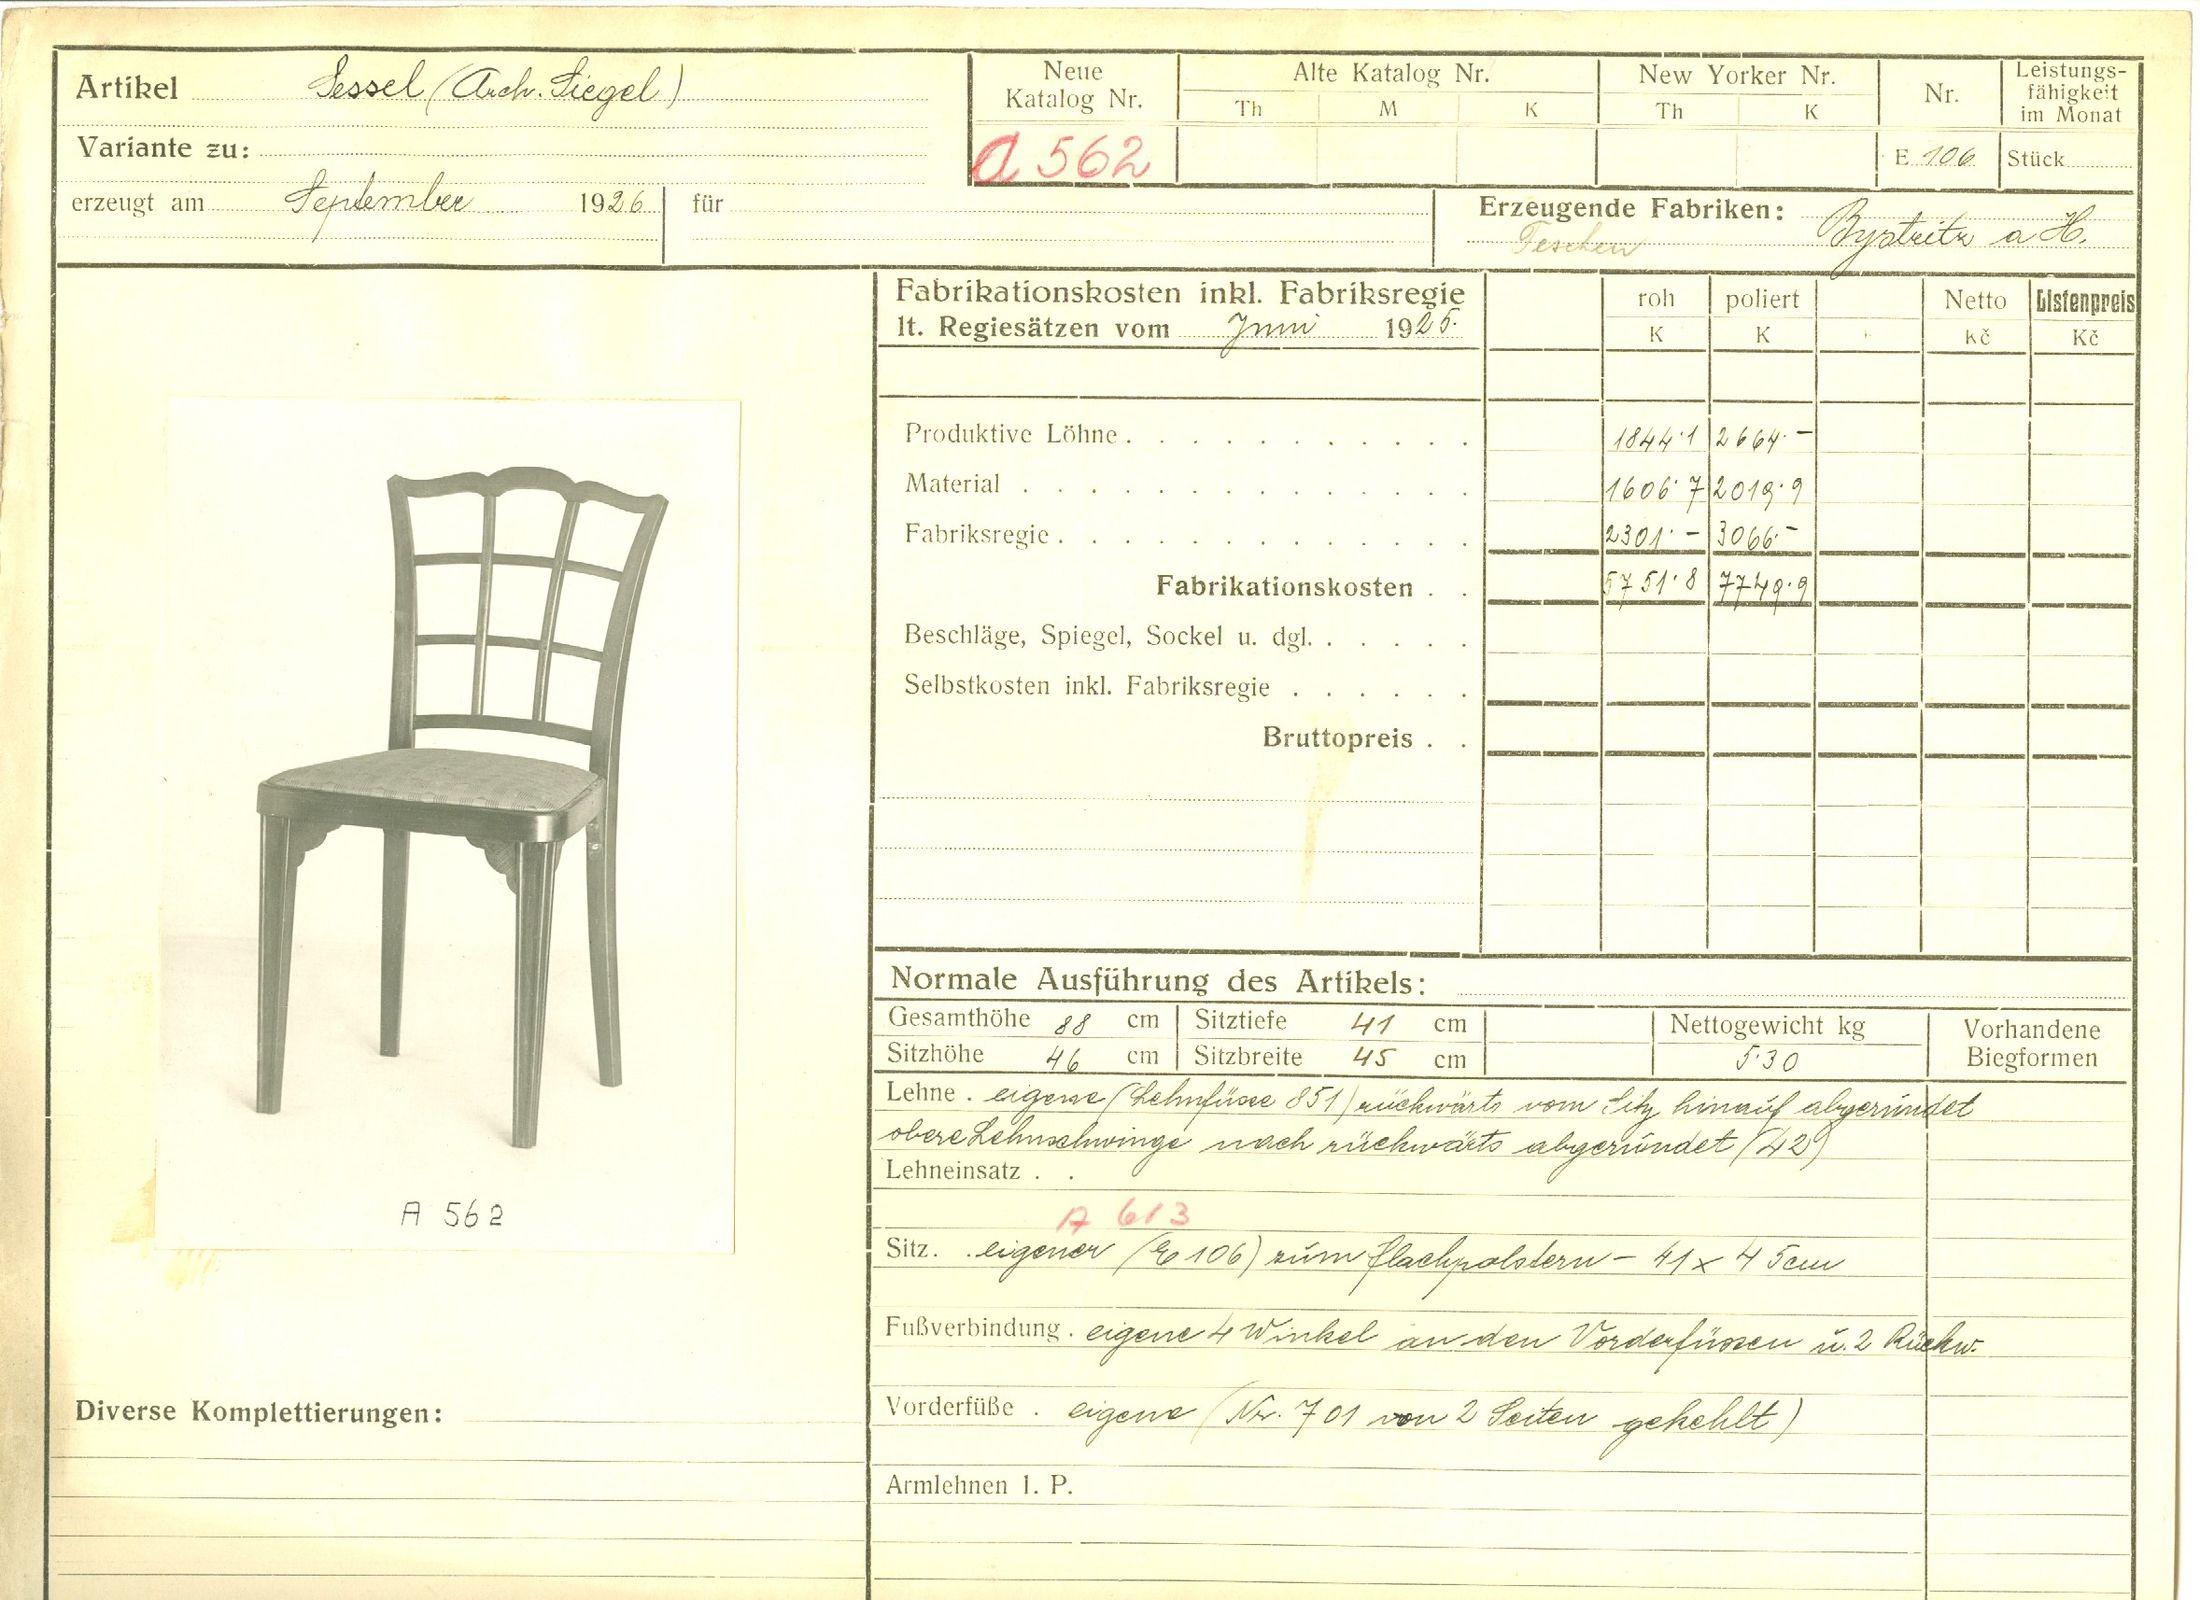 Artikel Sessel (Arch. Siegel)
Variante zu:
erzeugt am September 1926 für
Neue Katalog Nr.
A 562
Alte Katalog Nr.
Th M K
New Yorker Nr.
Th K
Nr.
E 106
Leistungs-
fähigkeit
im Monat
Stück
Erzeugende Fabriken: Bystritz a H.
Teschen
Fabrikationskosten inkl. Fabriksregie
lt. Regiesätzen vom Juni 1925.
roh poliert Netto Listenpreis
K K Kč Kč
Produktive Löhne 1844·1 2664·–
Material 1606·7 2019·9
Fabriksregie 2301·– 3066·–
Fabrikationskosten 5751·8 7749·9
Beschläge, Spiegel, Sockel u. dgl.
Selbstkosten inkl. Fabriksregie
Bruttopreis
A 562
Diverse Komplettierungen:
Normale Ausführung des Artikels:
Gesamthöhe 88 cm Sitztiefe 41 cm
Sitzhöhe 46 cm Sitzbreite 45 cm
Nettogewicht kg
5·30
Vorhandene
Biegformen
Lehne . eigene (Lehnfüsse 851) rückwärts vom Sitz hinauf abgerundet
obere Lehnschwinge nach rückwärts abgerundet (42)
Lehneinsatz . .
A 613
Sitz. . eigener (E 106) zum flachpolstern – 41 x 45cm
Fußverbindung . eigene 4 Winkel an den Vorderfüssen u. 2 Rückw.
Vorderfüße . eigene (Nr. 701 von 2 Seiten gekehlt)
Armlehnen l. P.